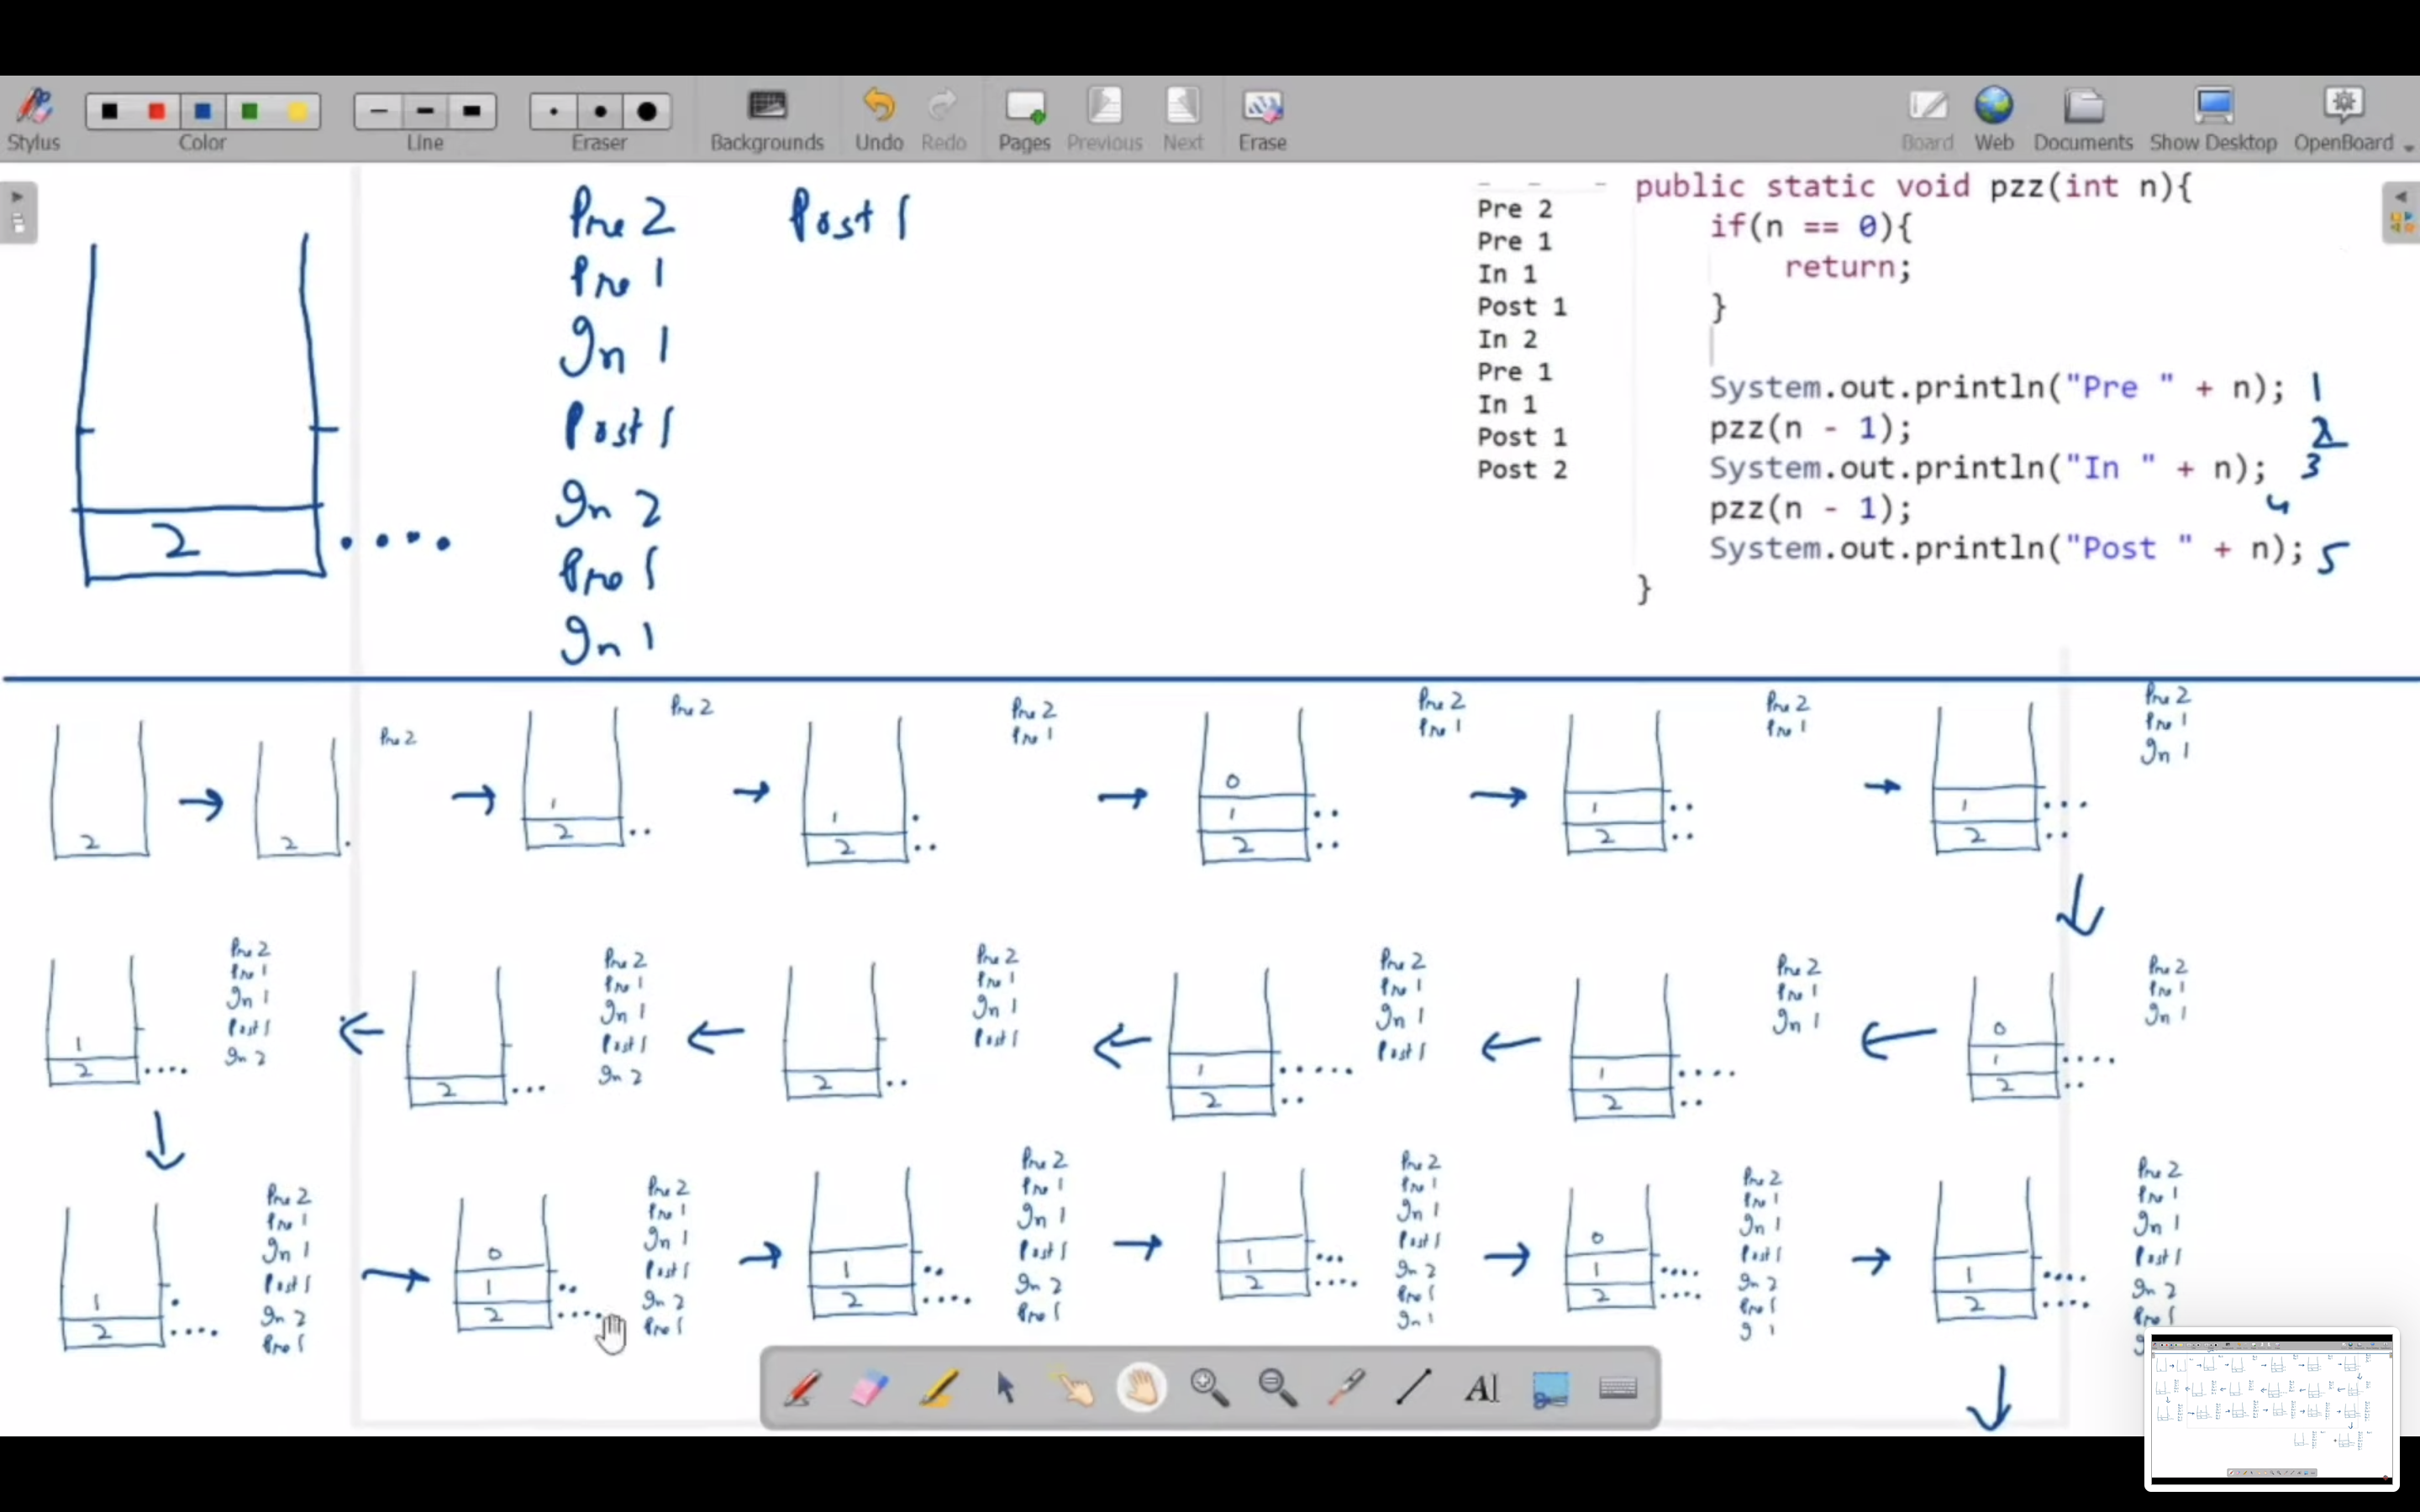 Stylus
Color
Line
Eraser
Backgrounds
Undo
Redo
Pages
Previous
Next
Erase
Board
Web
Documents
Show Desktop
OpenBoard
Pre 2
Pre 1
In 1
Post 1
In 2
Pre 1
In 1
Post 1
2
Pre 2
Pre 1
In 1
Post 1
In 2
Pre 1
In 1
Post 1
Post 2
public static void pzz(int n){
if(n == 0){
return;
}
System.out.println("Pre " + n); 1
pzz(n - 1); 2
System.out.println("In " + n); 3
pzz(n - 1); 4
System.out.println("Post " + n); 5
}
2
2
Pre 2
1
2
Pre 2
1
2
Pre 2
Pre 1
0
1
2
Pre 2
Pre 1
1
2
Pre 2
Pre 1
1
2
Pre 2
Pre 1
In 1
1
2
Pre 2
Pre 1
In 1
Post 1
In 2
2
Pre 2
Pre 1
In 1
Post 1
In 2
2
Pre 2
Pre 1
In 1
Post 1
1
2
Pre 2
Pre 1
In 1
Post 1
1
2
Pre 2
Pre 1
In 1
0
1
2
Pre 2
Pre 1
In 1
1
2
Pre 2
Pre 1
In 1
Post 1
In 2
Pre 1
0
1
2
Pre 2
Pre 1
In 1
Post 1
In 2
Pre 1
1
2
Pre 2
Pre 1
In 1
Post 1
In 2
Pre 1
1
2
Pre 2
Pre 1
In 1
Post 1
In 2
Pre 1
In 1
0
1
2
Pre 2
Pre 1
In 1
Post 1
In 2
Pre 1
1
2
Pre 2
Pre 1
In 1
Post 1
In 2
Pre 1
AI